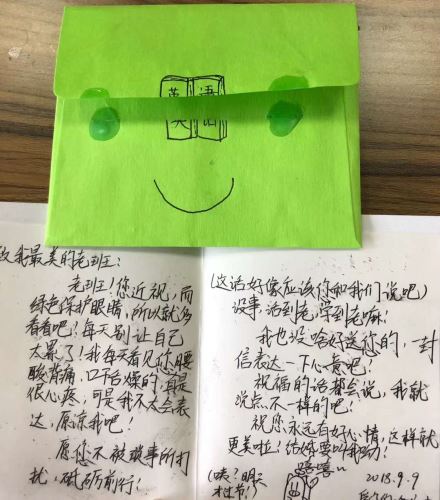 英语
致我最美的老班:
老班!您近视,而
绿色保护眼睛,所以就多
看看吧!每天别让自己
太累了!我每天看见你腰
酸背痛,口干舌燥的,真是
很心疼,可是我不太会表
达,原谅我吧!
愿您不被琐事所打
扰,砥砺前行!
(这话好像应该你和我们说吧)
没事,活到老,学到老嘛!
我也没啥好送您的,一封
信表达一下心意吧!
祝福的话都会说,我就
说点不一样的吧!
祝您永远有好心情,这样就
更美啦!给你
嘻嘻~
(咦?明天
才过节!)
2018.9.9